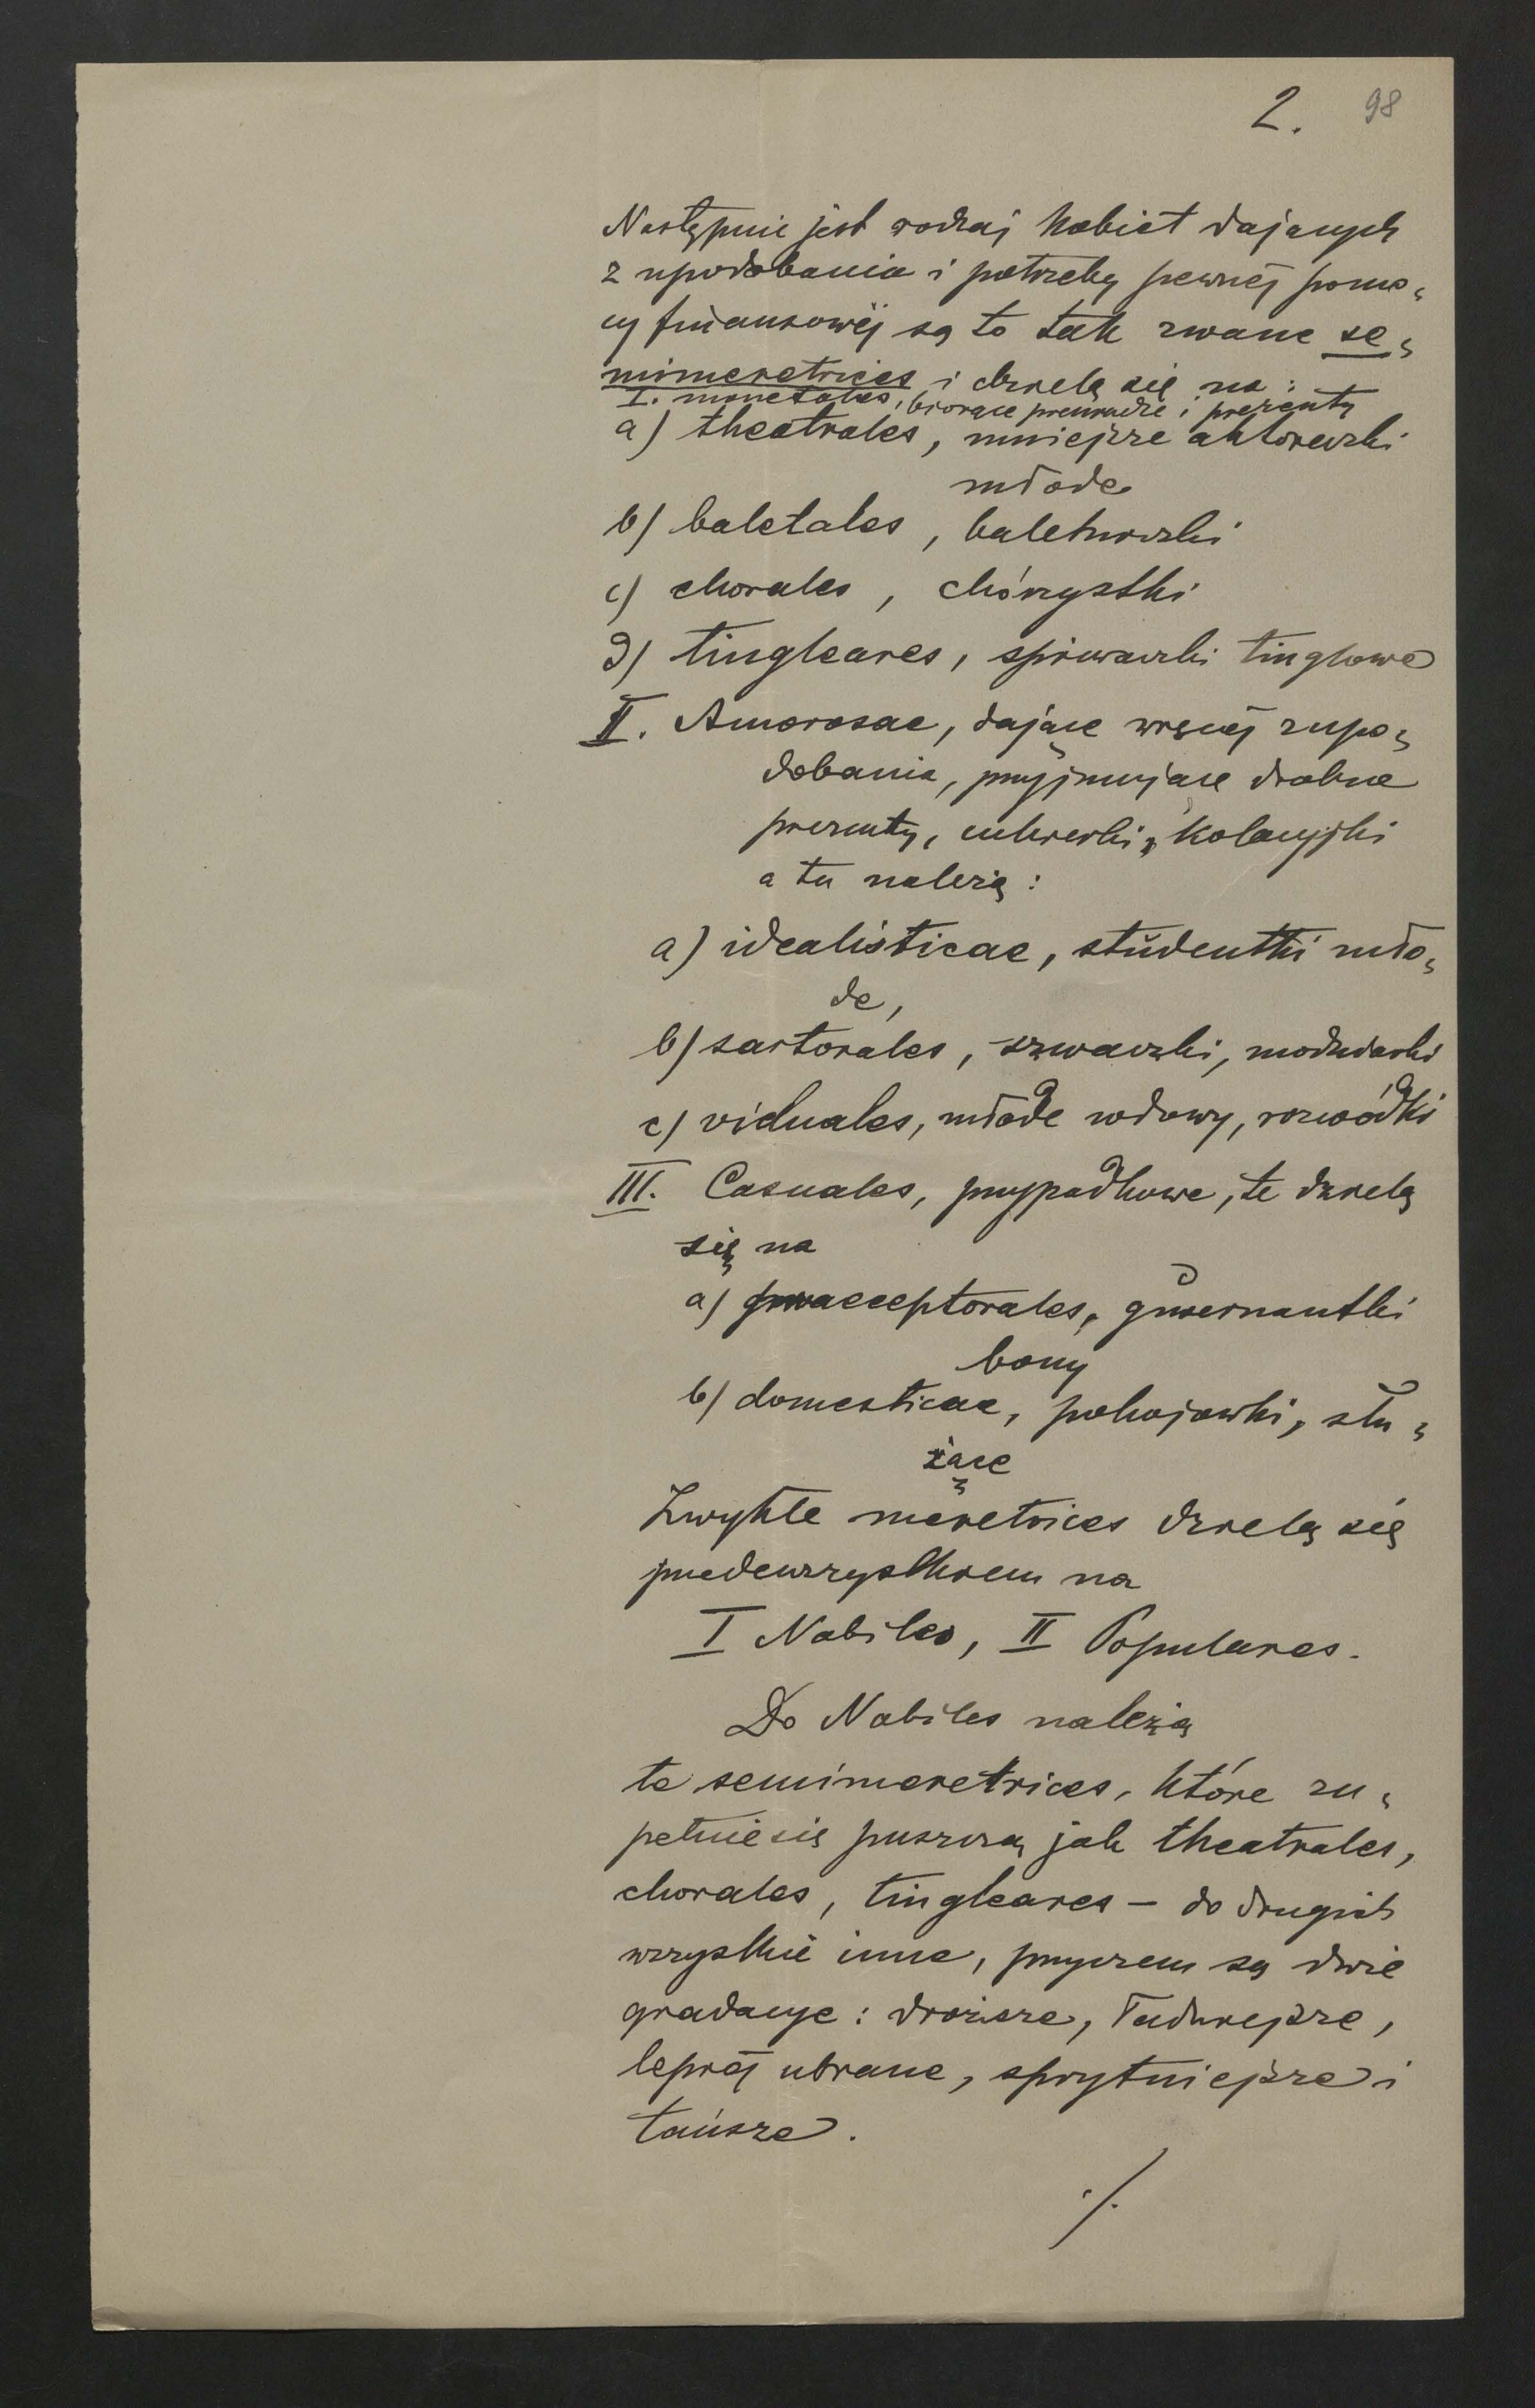 2. 98
Następnie jest rodzaj kobiet dających
z upodobania i potrzeby pewnéj pomo=
cy finansowéj są to tak zwane se=
mimeretrices i dzielą się na:
I. monetales, biorące pieniądze i prezenty
a) theatrales, mniejsze aktoreczki
młode
b) baletales, baletniczki
c) chorales, chórzystki
d) tingleares, śpiewaczki tinglowe
II. Amorosae, dające więcéj z upo=
dobania, przyjmujące drobne
prezenty, cukierki, kolacyjki
a tu należą:
a) idealisticae, studentki mło=
de,
b) sartorales, szwaczki, modniarki
c) viduales, młode wdowy, rozwódki
III. Casuales, przypadkowe, te dzielą
się na
a) praeceptorales, guwernantki
bony
b) domesticae, pokojówki, słu=
żące
Zwykłe meretrices dzielą się
przedewszystkiem na
I Nobiles, II Populares.
Do Nobiles należą
te semimeretrices, które zu=
pełnie się puszczą jak theatrales,
chorales, tingleares - do drugich
wszystkie inne, przyczem są dwie
gradacye: droższe, ładniejsze,
lepiéj ubrane, sprytniejsze i
tańsze.
./.